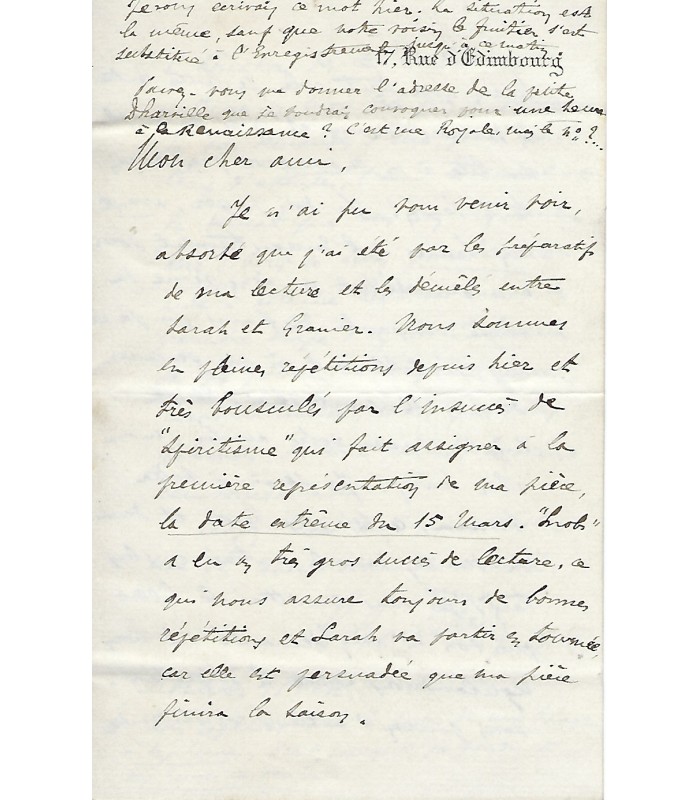 Je vous écrivais ce mot hier. La situation est
la même, sauf que notre voisin le fruitier s'est
substitué à l'Enregistrement jusqu'à ce matin
17, Rue d'Edimbourg
Pouvez-vous me donner l'adresse de la petite
Dharville que je voudrais convoquer pour une heure
à la Renaissance ? C'est rue Royale, mais le no ?...
Mon cher ami,
Je n'ai pu vous venir voir,
absorbé que j'ai été par les préparatifs
de ma lecture et les démêlés entre
Sarah et Granier. Nous sommes
en pleines répétitions depuis hier et
très bousculés par l'insuccès de
"Spiritisme" qui fait assigner à la
première représentation de ma pièce,
la date extrême du 15 Mars. "Snobs"
a eu un très gros succès de lecture, ce
qui nous assure toujours de bonnes
répétitions et Sarah va partir en tournée,
car elle est persuadée que ma pièce
finira la saison.